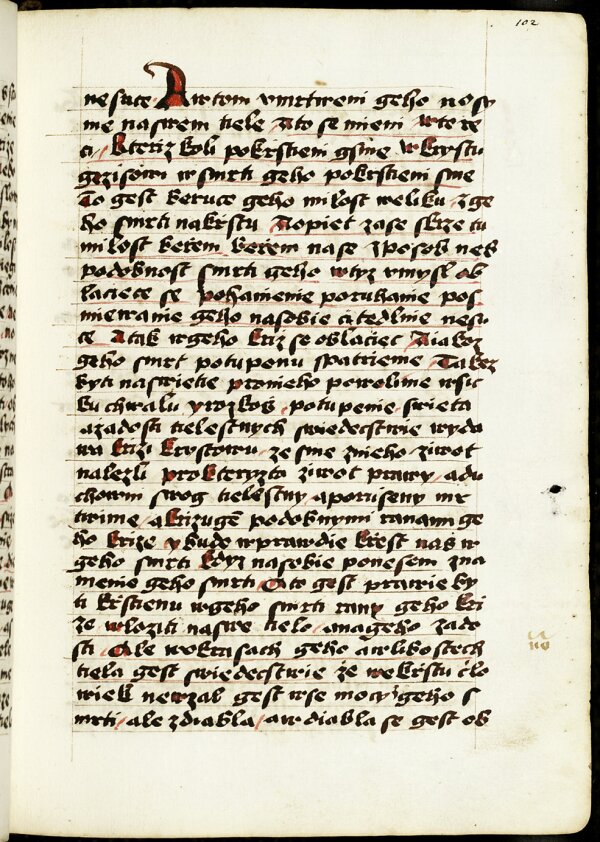 102
nesuce Awtom vmrtweni geho nosy
me naswem tiele Ato se mieni wtere
ci Kteriz koli pokrstieni gsme wkrystu
gezisowi wsmrti geho pokrstieni sme
To gest beruce geho milost weliku zge
ho smrti nakrstu Aopiet zase skrze tu
milost berem berem nase zposob neb
podobnost smrti geho wtyz vmysl ob
laciece se pohanienie poruhanie pos
miewanie geho nasobie citedlnie nesu
ce Atak wgeho kriz se oblaciec Aiakoz
geho smrt potupenu spatrieme Takez
byti naswietie pronieho powolime wsic
ku chwalu yrozkos potupenie swieta
azadosti tielestnych swiedecstwie wyda
wa krizi krystowu ze sme znieho ziwot
nalezli prokteryzto ziwot prawy adu
chowni swog tielestny aporuseny mr
twime akrizugem podobnymi ranami ge
ho krize ybude wprawdie krest nas w
geho smrti kdyz nasobie ponesem zna
menie geho smrti Ato gest prawie by
ti krstienu wgeho smrti rany geho kri
ze wloziti naswe tielo anageho zado
sti Ale wokrasach geho awlibostech
tiela gest swiedecstwie ze wekrstu clo
wiek newzal gest wse mocy geho s
mrti ale zdiabla awdiabla se gest ob